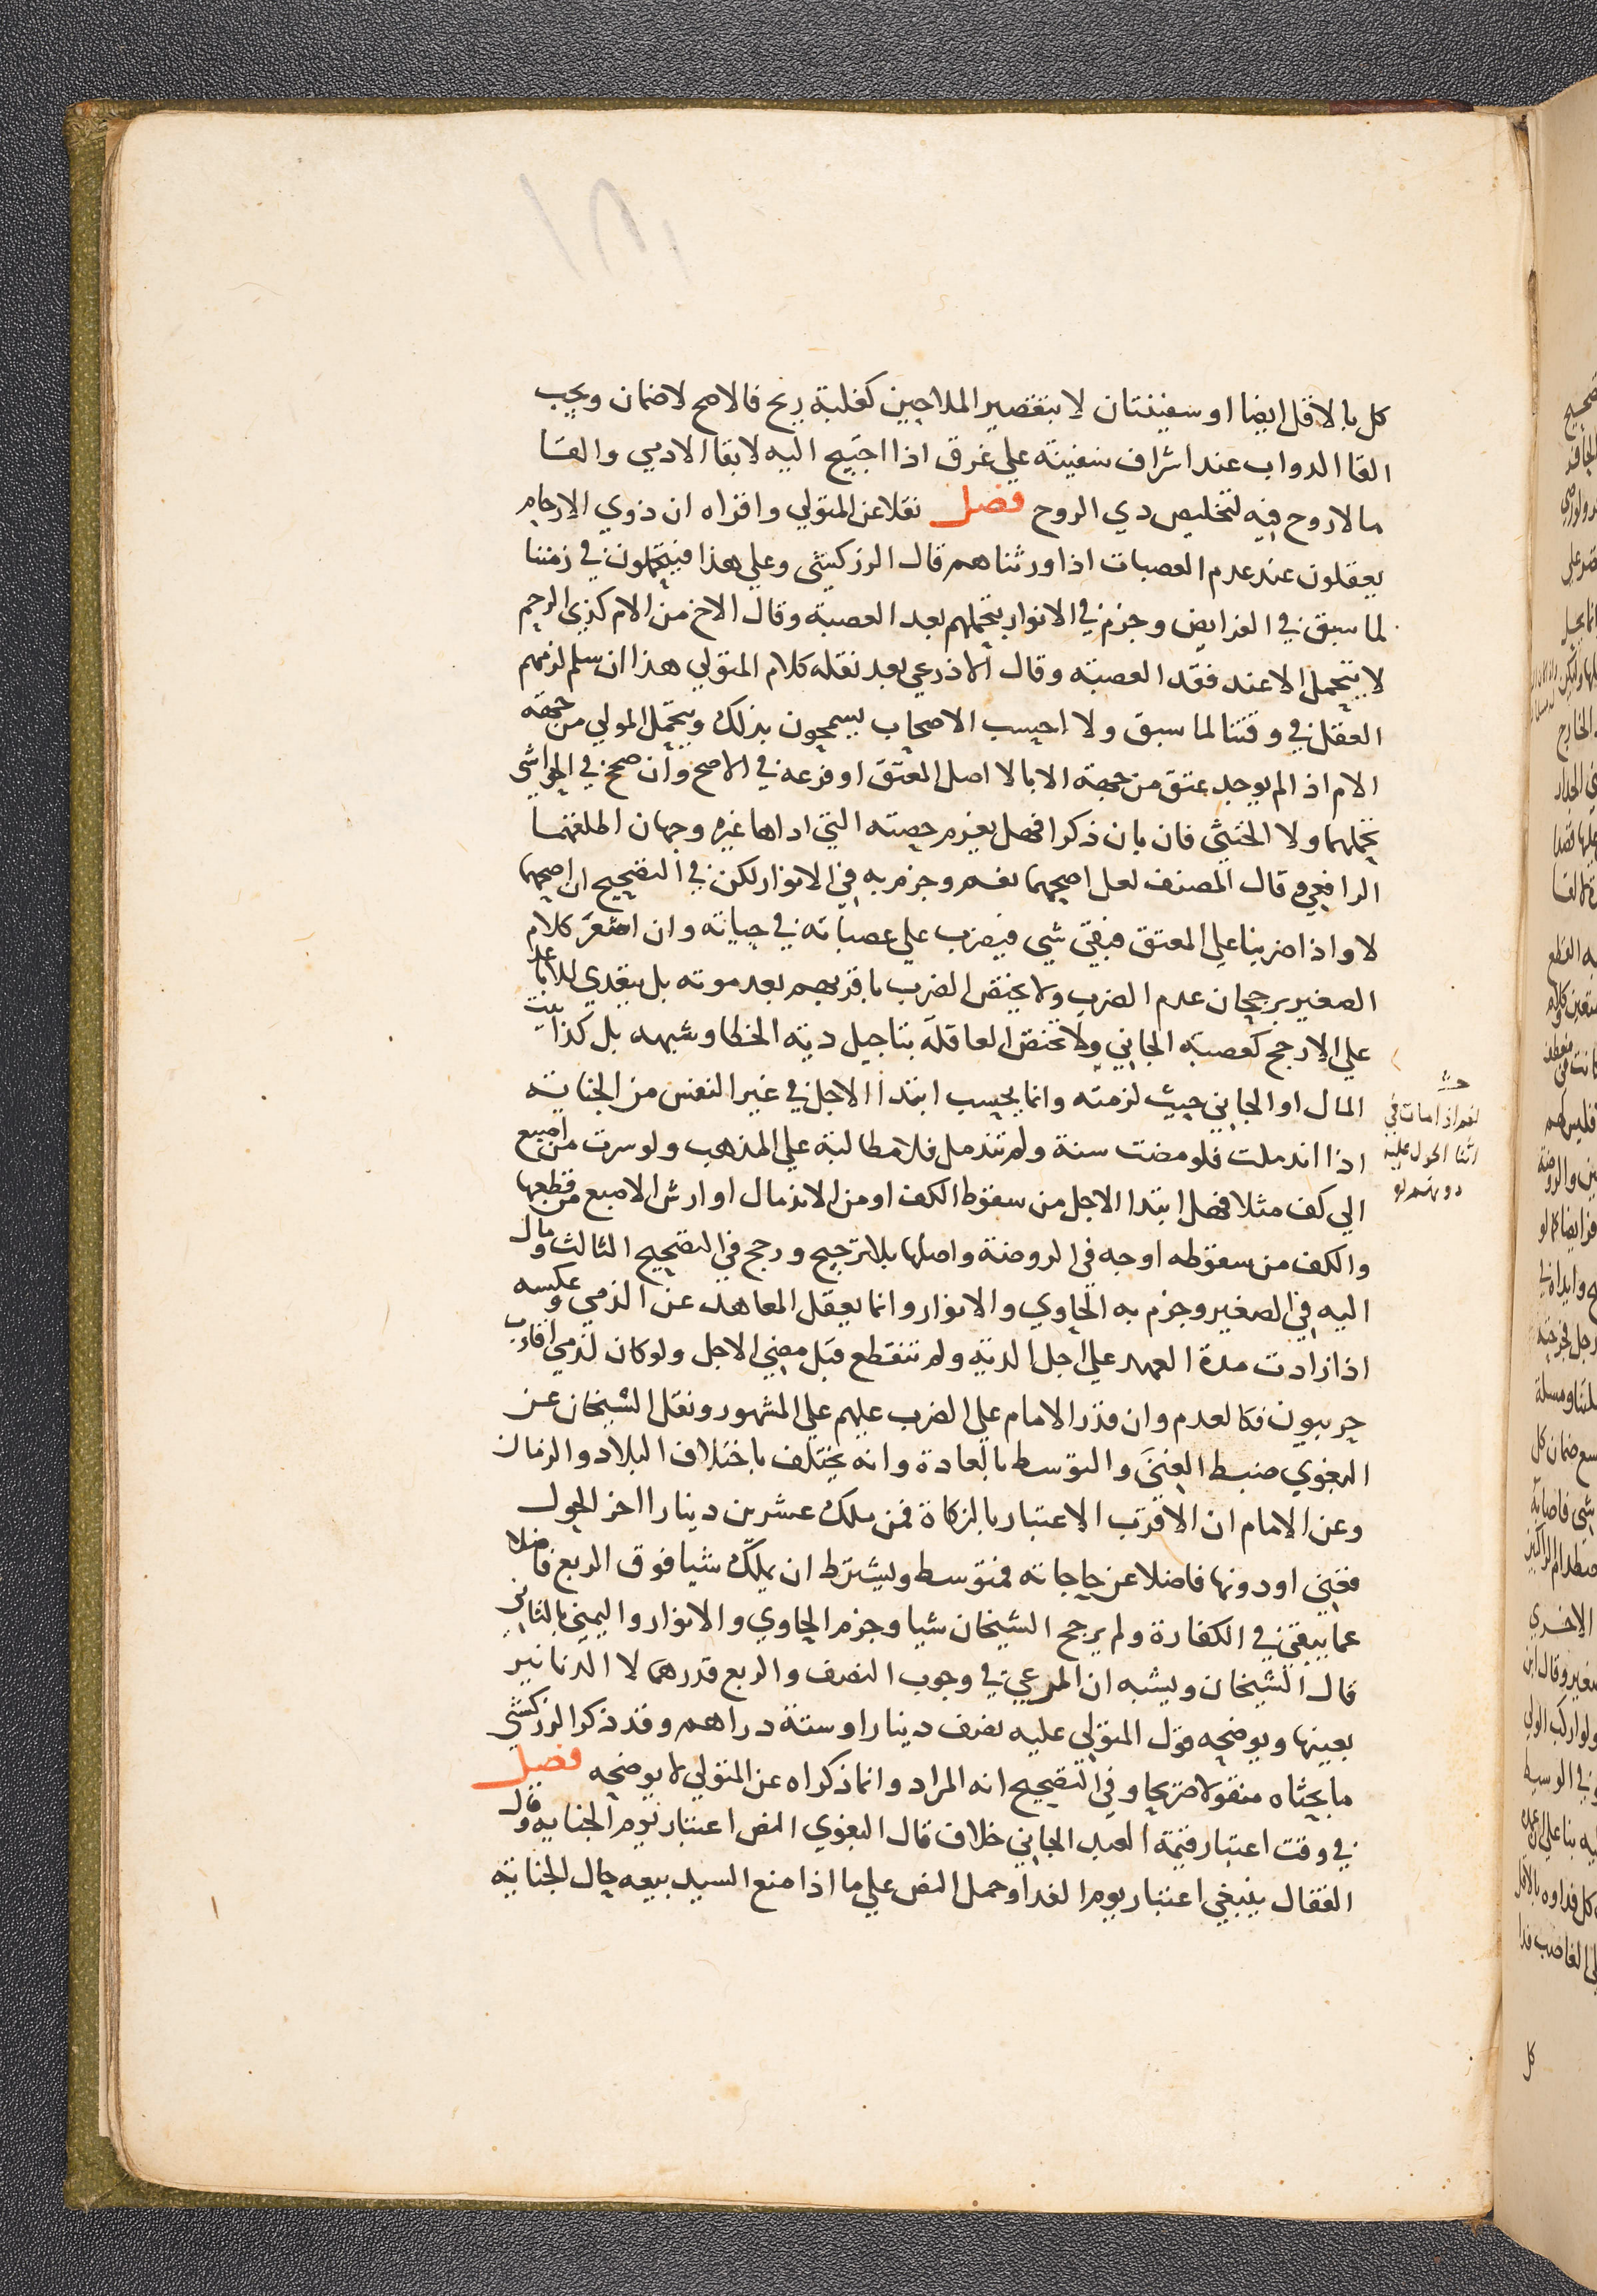 كل بالاقل ايضا او سفينتان لا بتقصير الملاحين كغلبة ريح فالاصح لا ضمان ويجب
القا الدواب عند اشراف سفينة علي غرق اذا احتيج اليه لابقا الادمي والقا
ما لا روح فيه لتخليص ذي الروح فصل نقلا عن المتولي واقراه ان ذوي الارحام
يعقلون عند عدم العصبات اذا ورثناهم قال الزركشي وعلي هذا فيتحملون في زمننا
لما سبق في الفرايض وجزم في الانوار بتحملهم بعد العصبة وقال الاخ من الام كذي الرحم
لا يتحمل الا عند فقد العصبة وقال الاذرعي بعد نقله كلام المتولي هذا ان سلم لزمهم
العقل في وقتنا لما سبق ولا احسب الاصحاب يسمحون بذلك ويتحمل المولي من جهة
الام اذا لم يوجد عتق من جهة الابا لا اصل المعتق او فرعه في الاصح وان صحح في الحواشي
تحملهما ولا الخنثي فان بان ذكرا فهل يغرم حصته التي اداها غيره وجهان اطلقهما
الرافعي وقال المصنف لعل اصحهما نعم وجزم به في الانوار لكن في التصحيح ان اصحهما
لا واذا ضربنا علي المعتق فبقي شي فيضرب علي عصباته في حياته وان اشعر كلام
الصغير برجحان عدم الضرب ولا يختص الضرب باقربهم بعد موته بل يتعدي للاباعد
علي الارجح كعصبة الجاني ولا تختص العاقلة بتاجيل دية الخطا وشبهه بل كذا بيت
المال او الجاني حيث لزمته وانما يحسب ابتدا الاجل في غير النفس من الجناية
اذا اندملت فلو مضت سنة ولم تندمل فلا مطالبة علي المذهب ولو سرت من اصبع
الي كف مثلا فهل ابتدا الاجل من سقوط الكف او من الاندمال او ارش الاصبع من قطعها
والكف من سقوطه اوجه في الروضة واصلها بلا ترجيح ورجح في التصحيح الثالث ومال
اليه في الصغير وجزم به الحاوي والانوار وانما يعقل المعاهد عن الذمي وعكسه
اذا زادت مدة العهد علي اجل الدية ولم تنقطع قبل مضي الاجل ولو كان لذمي اقارب
حربيون فكالعدم وان قدر الامام علي الضرب عليهم علي المشهور ونقل الشيخان عن
البغوي ضبط الغني والتوسط بالعادة وانه يختلف باختلاف البلاد والزمان
وعن الامام ان الاقرب الاعتبار بالزكاة فمن ملك عشرين دينارا اخر الحول
فغني او دونها فاضلا عن حاجاته فمتوسط ويشترط ان يملك شيا فوق الربع فاضلا
عما يبقي في الكفارة ولم يرجح الشيخان شيا وجزم الحاوي والانوار واليمني بالثاني
قال الشيخان ويشبه ان المرعي في وجوب النصف والربع قدرهما لا الدنانير
بعينها ويوضحه قول المتولي عليه نصف دينار او ستة دراهم وقد ذكر الزركشي
ما بحثاه منقولا صريحا وفي التصحيح انه المراد وانما ذكراه عن المتولي لا يوضحه فصل
في وقت اعتبار قيمة العبد الجاني خلاف قال البغوي النص اعتبار يوم الجناية وقال
القفال ينبغي اعتبار يوم الفدا وحمل النص علي ما اذا منع السيد بيعه حال الجناية
نعم اذا مات في
اثنا الحول عليه
كل